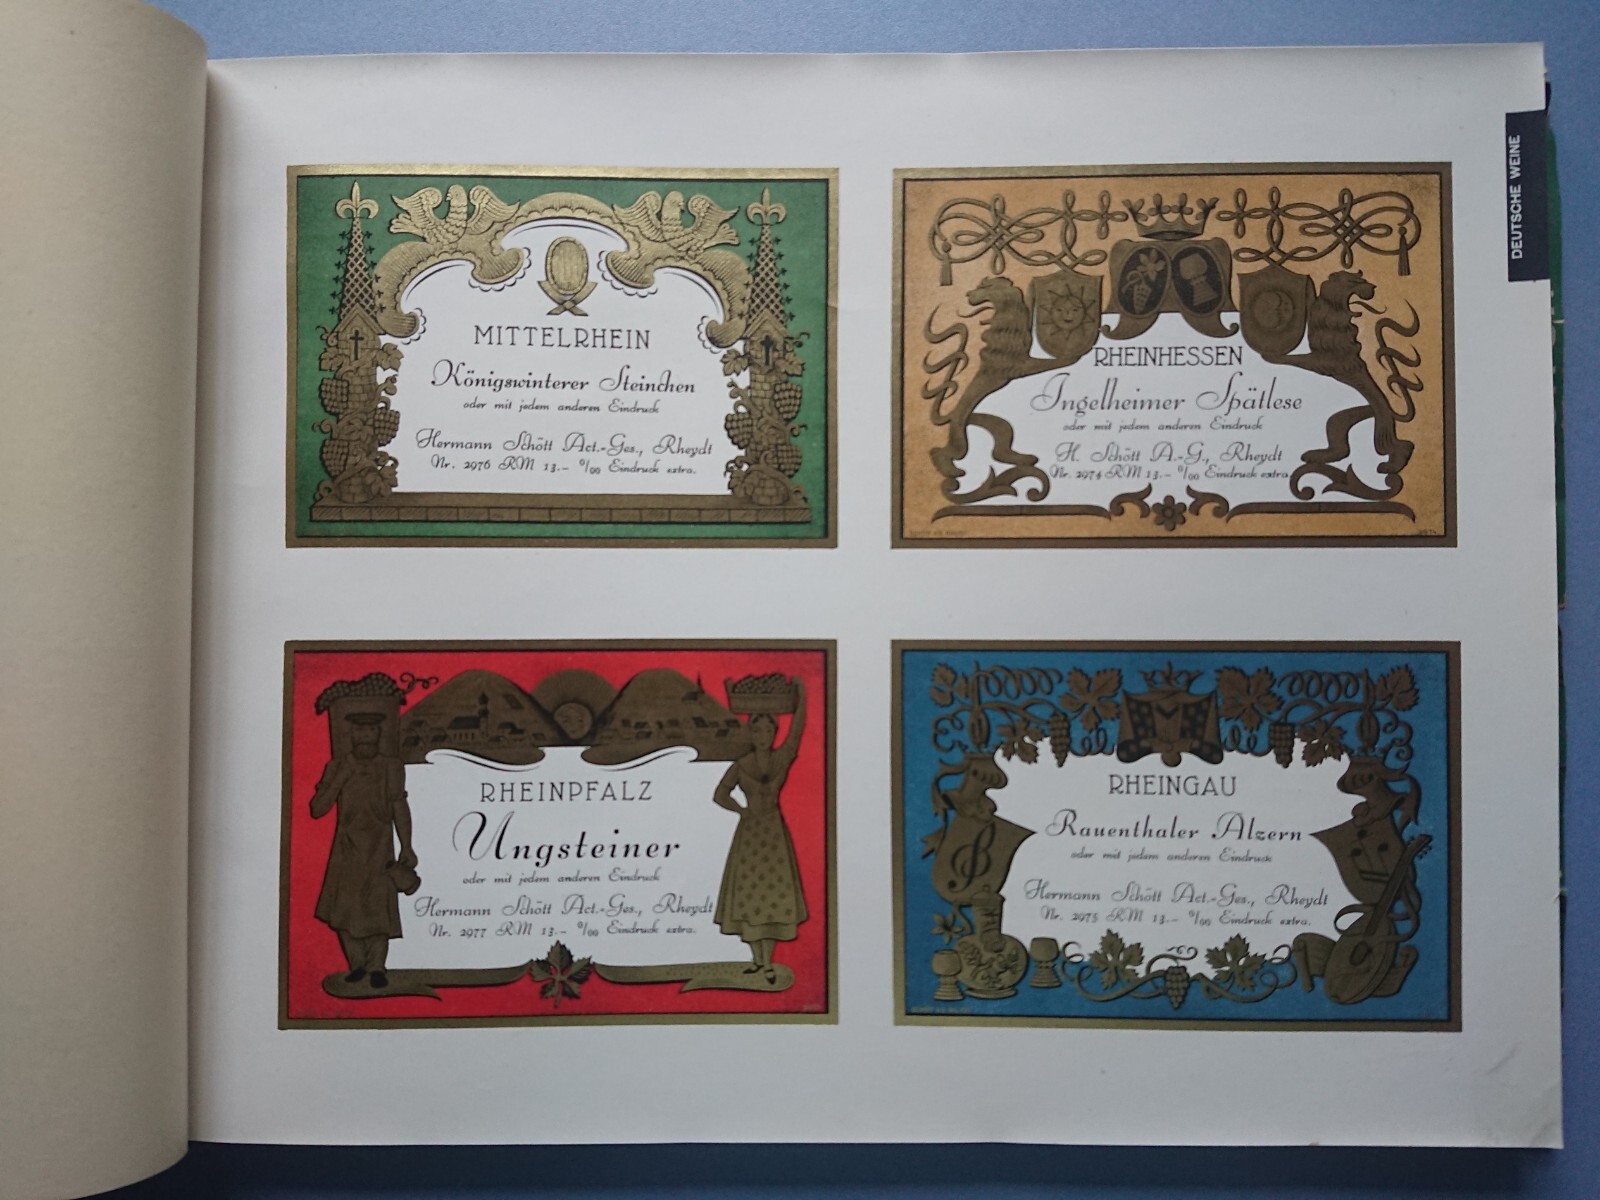 DEUTSCHE WEINE
MITTELRHEIN
Königswinterer Steinchen
oder mit jedem anderen Eindruck
Hermann Schött Act.-Ges., Rheydt
Nr. 2976 RM 13.- %00 Eindruck extra.
RHEINHESSEN
Ingelheimer Spätlese
oder mit jedem anderen Eindruck
H. Schött A.-G., Rheydt
Nr. 2974 RM 13.- %00 Eindruck extra
RHEINPFALZ
Ungsteiner
oder mit jedem anderen Eindruck
Hermann Schött Act.-Ges., Rheydt
Nr. 2977 RM 13.- %00 Eindruck extra.
RHEINGAU
Rauenthaler Alzern
oder mit jedem anderen Eindruck
Hermann Schött Act.-Ges., Rheydt
Nr. 2975 RM 13.- %00 Eindruck extra.